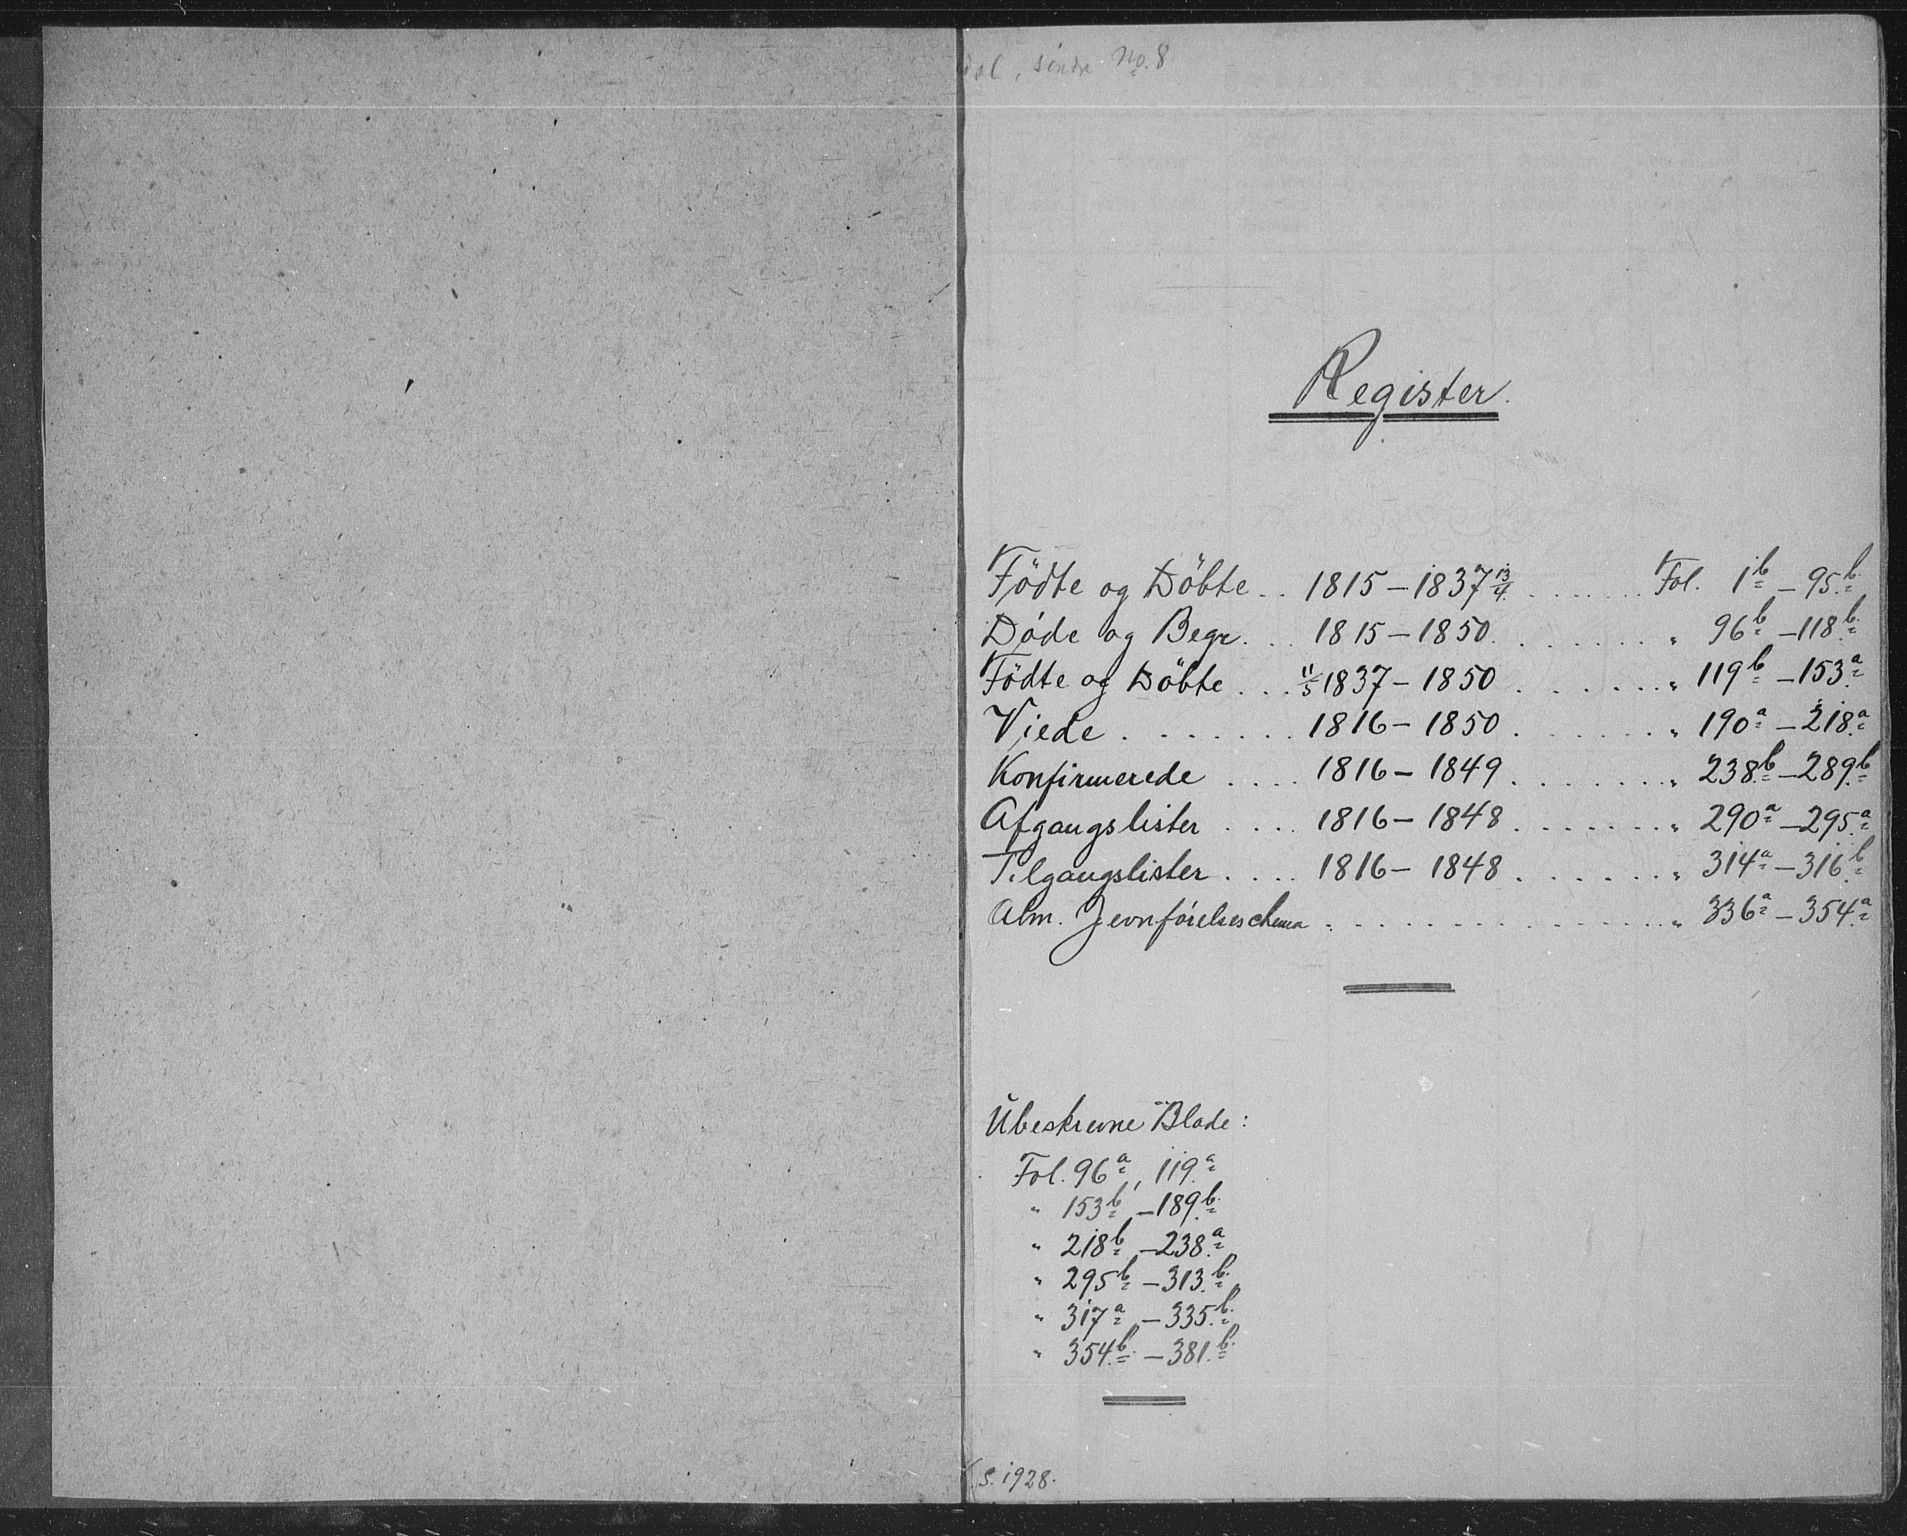 søndre No. 8
Register.
Födte og Döbte .. 1815 – 1837 13/4 ....... Fol. 1b – 95.b
Døde og Begr. .. 1815 – 1850. ....... " 96b – 118.b
Födte og Döbte ... 11/5 1837 – 1850 ....... " 119b – 153.a
Viede ....... 1816 – 1850 ....... " 190a – 218.a
Konfirmerede .... 1816 – 1849 ....... " 238.b – 289.b
Afgangslister .... 1816 – 1848 ....... " 290a – 295.a
Tilgangslister .... 1816 – 1848 ....... " 314a – 316.b
Alm. Jevnførelseschema ................ " 336a – 354.a
Ubeskrevne Blade:
Fol. 96a, 119.a
" 153b – 189.b
" 218b – 238.a
" 295b – 313.b
" 317a – 335.b
" 354.b – 381.b
S. 1928.